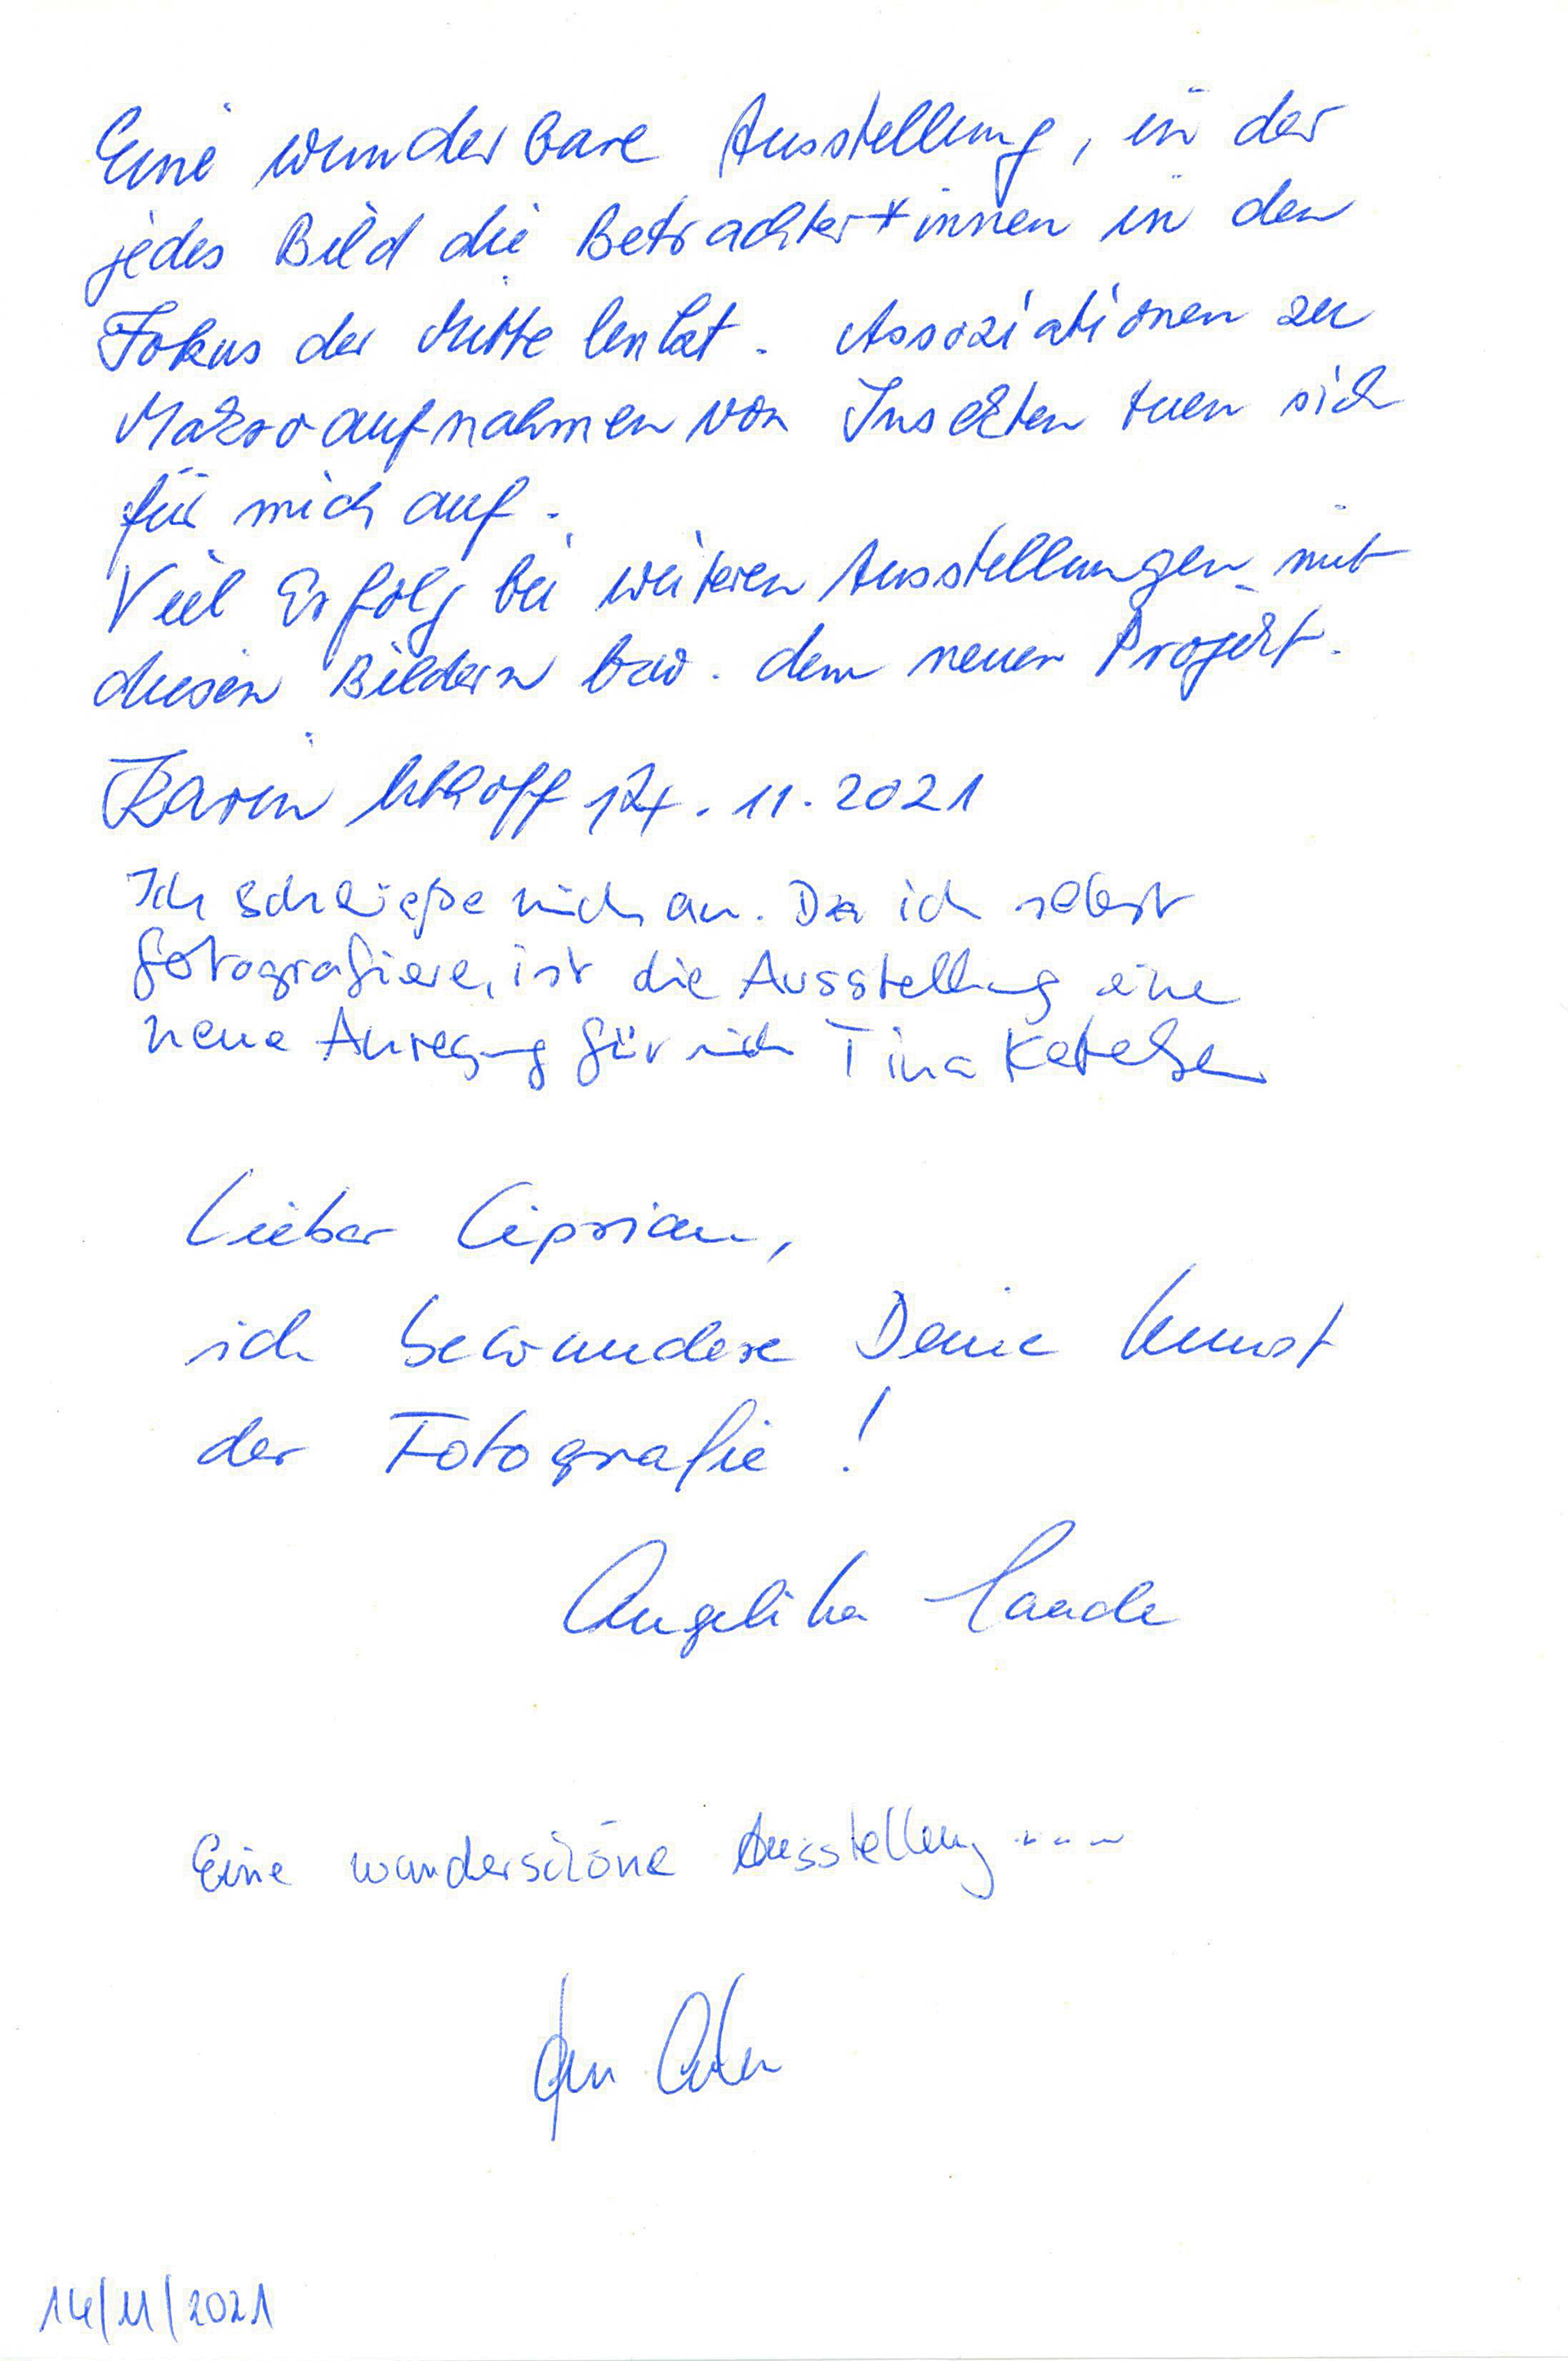 Eine wunderbare Ausstellung, in der
jedes Bild die Betrachter*innen in den
Fokus der Mitte lenkt. Assoziationen zu
Makroaufnahmen von Insekten tuen sich
für mich auf.
Viel Erfolg bei weiteren Ausstellungen mit
diesen Bildern bzw. dem neuen Projekt.
Karin 14.11.2021
Ich schließe mich an. Da ich selbst
fotografiere, ist die Ausstellung eine
neue Anregung für mich Tina Ketelsen
Lieber Ciprian,
ich bewundere Deine Kunst
der Fotografie!
Angelika
Eine wunderschöne Ausstellung....
14/11/2021